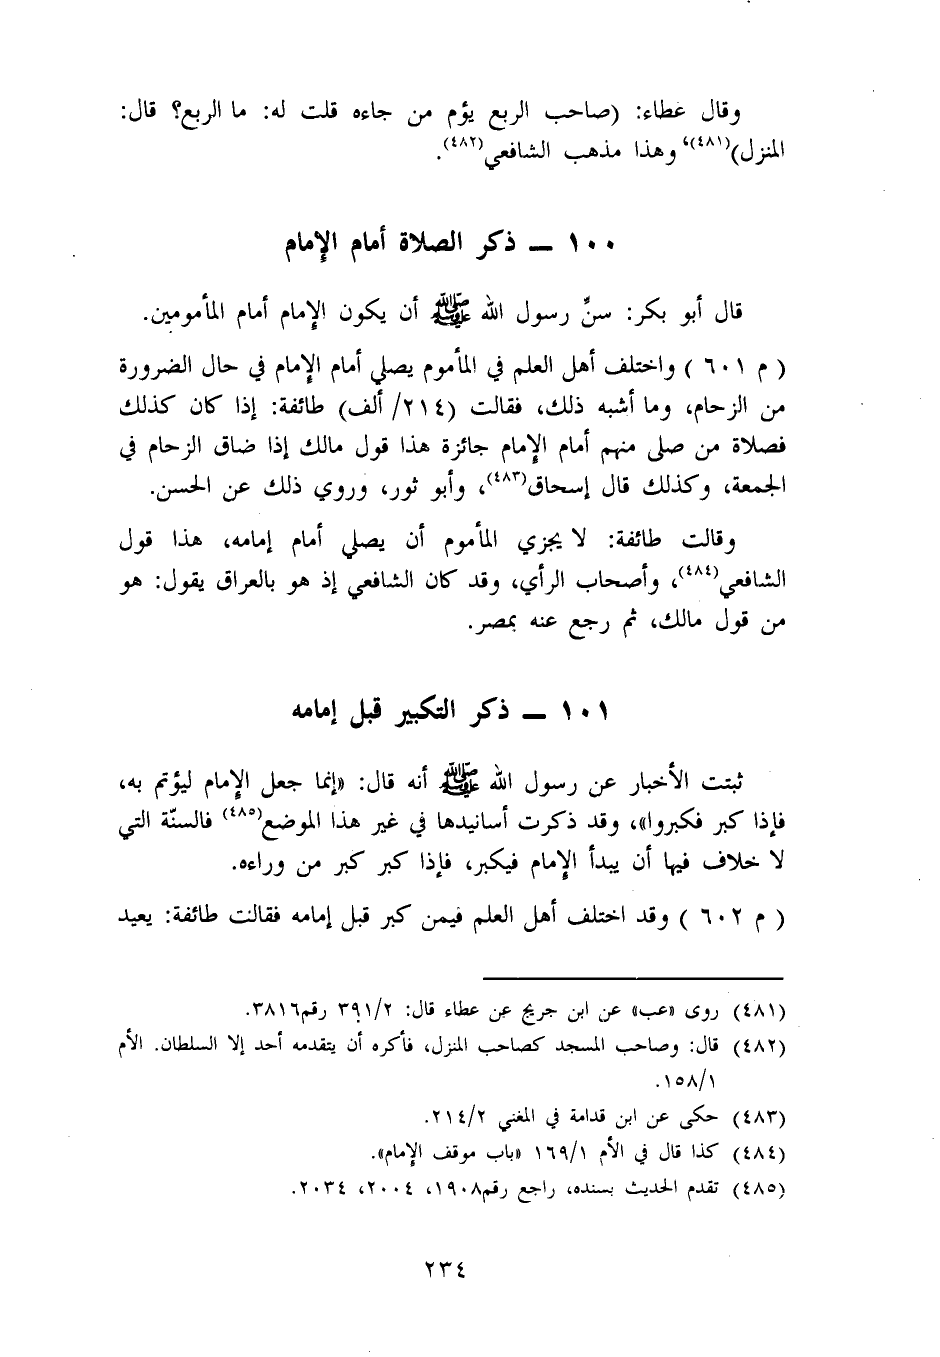 وقال عطاء: (صاحب الربع يؤم من جاءه قلت له: ما الربع؟ قال:
المنزل)(٤٨١)، وهذا مذهب الشافعي(٤٨٢).
١٠٠ ــ ذكر الصلاة أمام الإمام
قال أبو بكر: سنّ رسول الله ﷺ أن يكون الإمام أمام المأمومين.
( م ٦٠١ ) واختلف أهل العلم في المأموم يصلي أمام الإمام في حال الضرورة
من الزحام، وما أشبه ذلك، فقالت (٢١٤/ ألف) طائفة: إذا كان كذلك
فصلاة من صلى منهم أمام الإمام جائزة هذا قول مالك إذا ضاق الزحام في
الجمعة، وكذلك قال إسحاق(٤٨٣)، وأبو ثور، وروي ذلك عن الحسن.
وقالت طائفة: لا يجزي المأموم أن يصلي أمام إمامه، هذا قول
الشافعي(٤٨٤)، وأصحاب الرأي، وقد كان الشافعي إذ هو بالعراق يقول: هو
من قول مالك، ثم رجع عنه بمصر.
١٠١ ــ ذكر التكبير قبل إمامه
ثبتت الأخبار عن رسول الله ﷺ أنه قال: «إنما جعل الإمام ليؤتم به،
فإذا كبر فكبروا»، وقد ذكرت أسانيدها في غير هذا الموضع(٤٨٥) فالسنّة التي
لا خلاف فيها أن يبدأ الإمام فيكبر، فإذا كبر كبر من وراءه.
( م ٦٠٢ ) وقد اختلف أهل العلم فيمن كبر قبل إمامه فقالت طائفة: يعيد
(٤٨١) روى «عب» عن ابن جريج عن عطاء قال: ٣٩١/٢ رقم٣٨١٦.
(٤٨٢) قال: وصاحب المسجد كصاحب المنزل، فأكره أن يتقدمه أحد إلا السلطان. الأم
١٥٨/١.
(٤٨٣) حكى عن ابن قدامة في المغني ٢١٤/٢.
(٤٨٤) كذا قال في الأم ١٦٩/١ «باب موقف الإمام».
(٤٨٥) تقدم الحديث بسنده، راجع رقم١٩٠٨، ٢٠٠٤، ٢٠٣٤.
٢٣٤